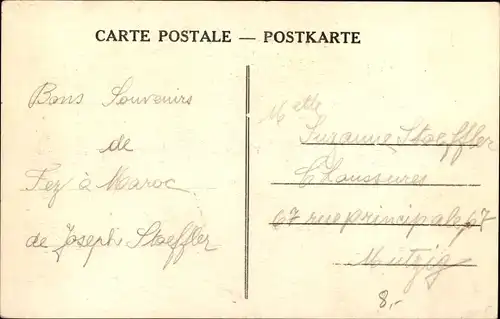 CARTE POSTALE — POSTKARTE
Bons Souvenirs
de
Fez à Maroc
de Joseph Stoeffler
Melle
Suzanne Stoeffler
Chaussures
67 rue principale 67
Mutzig
8,-